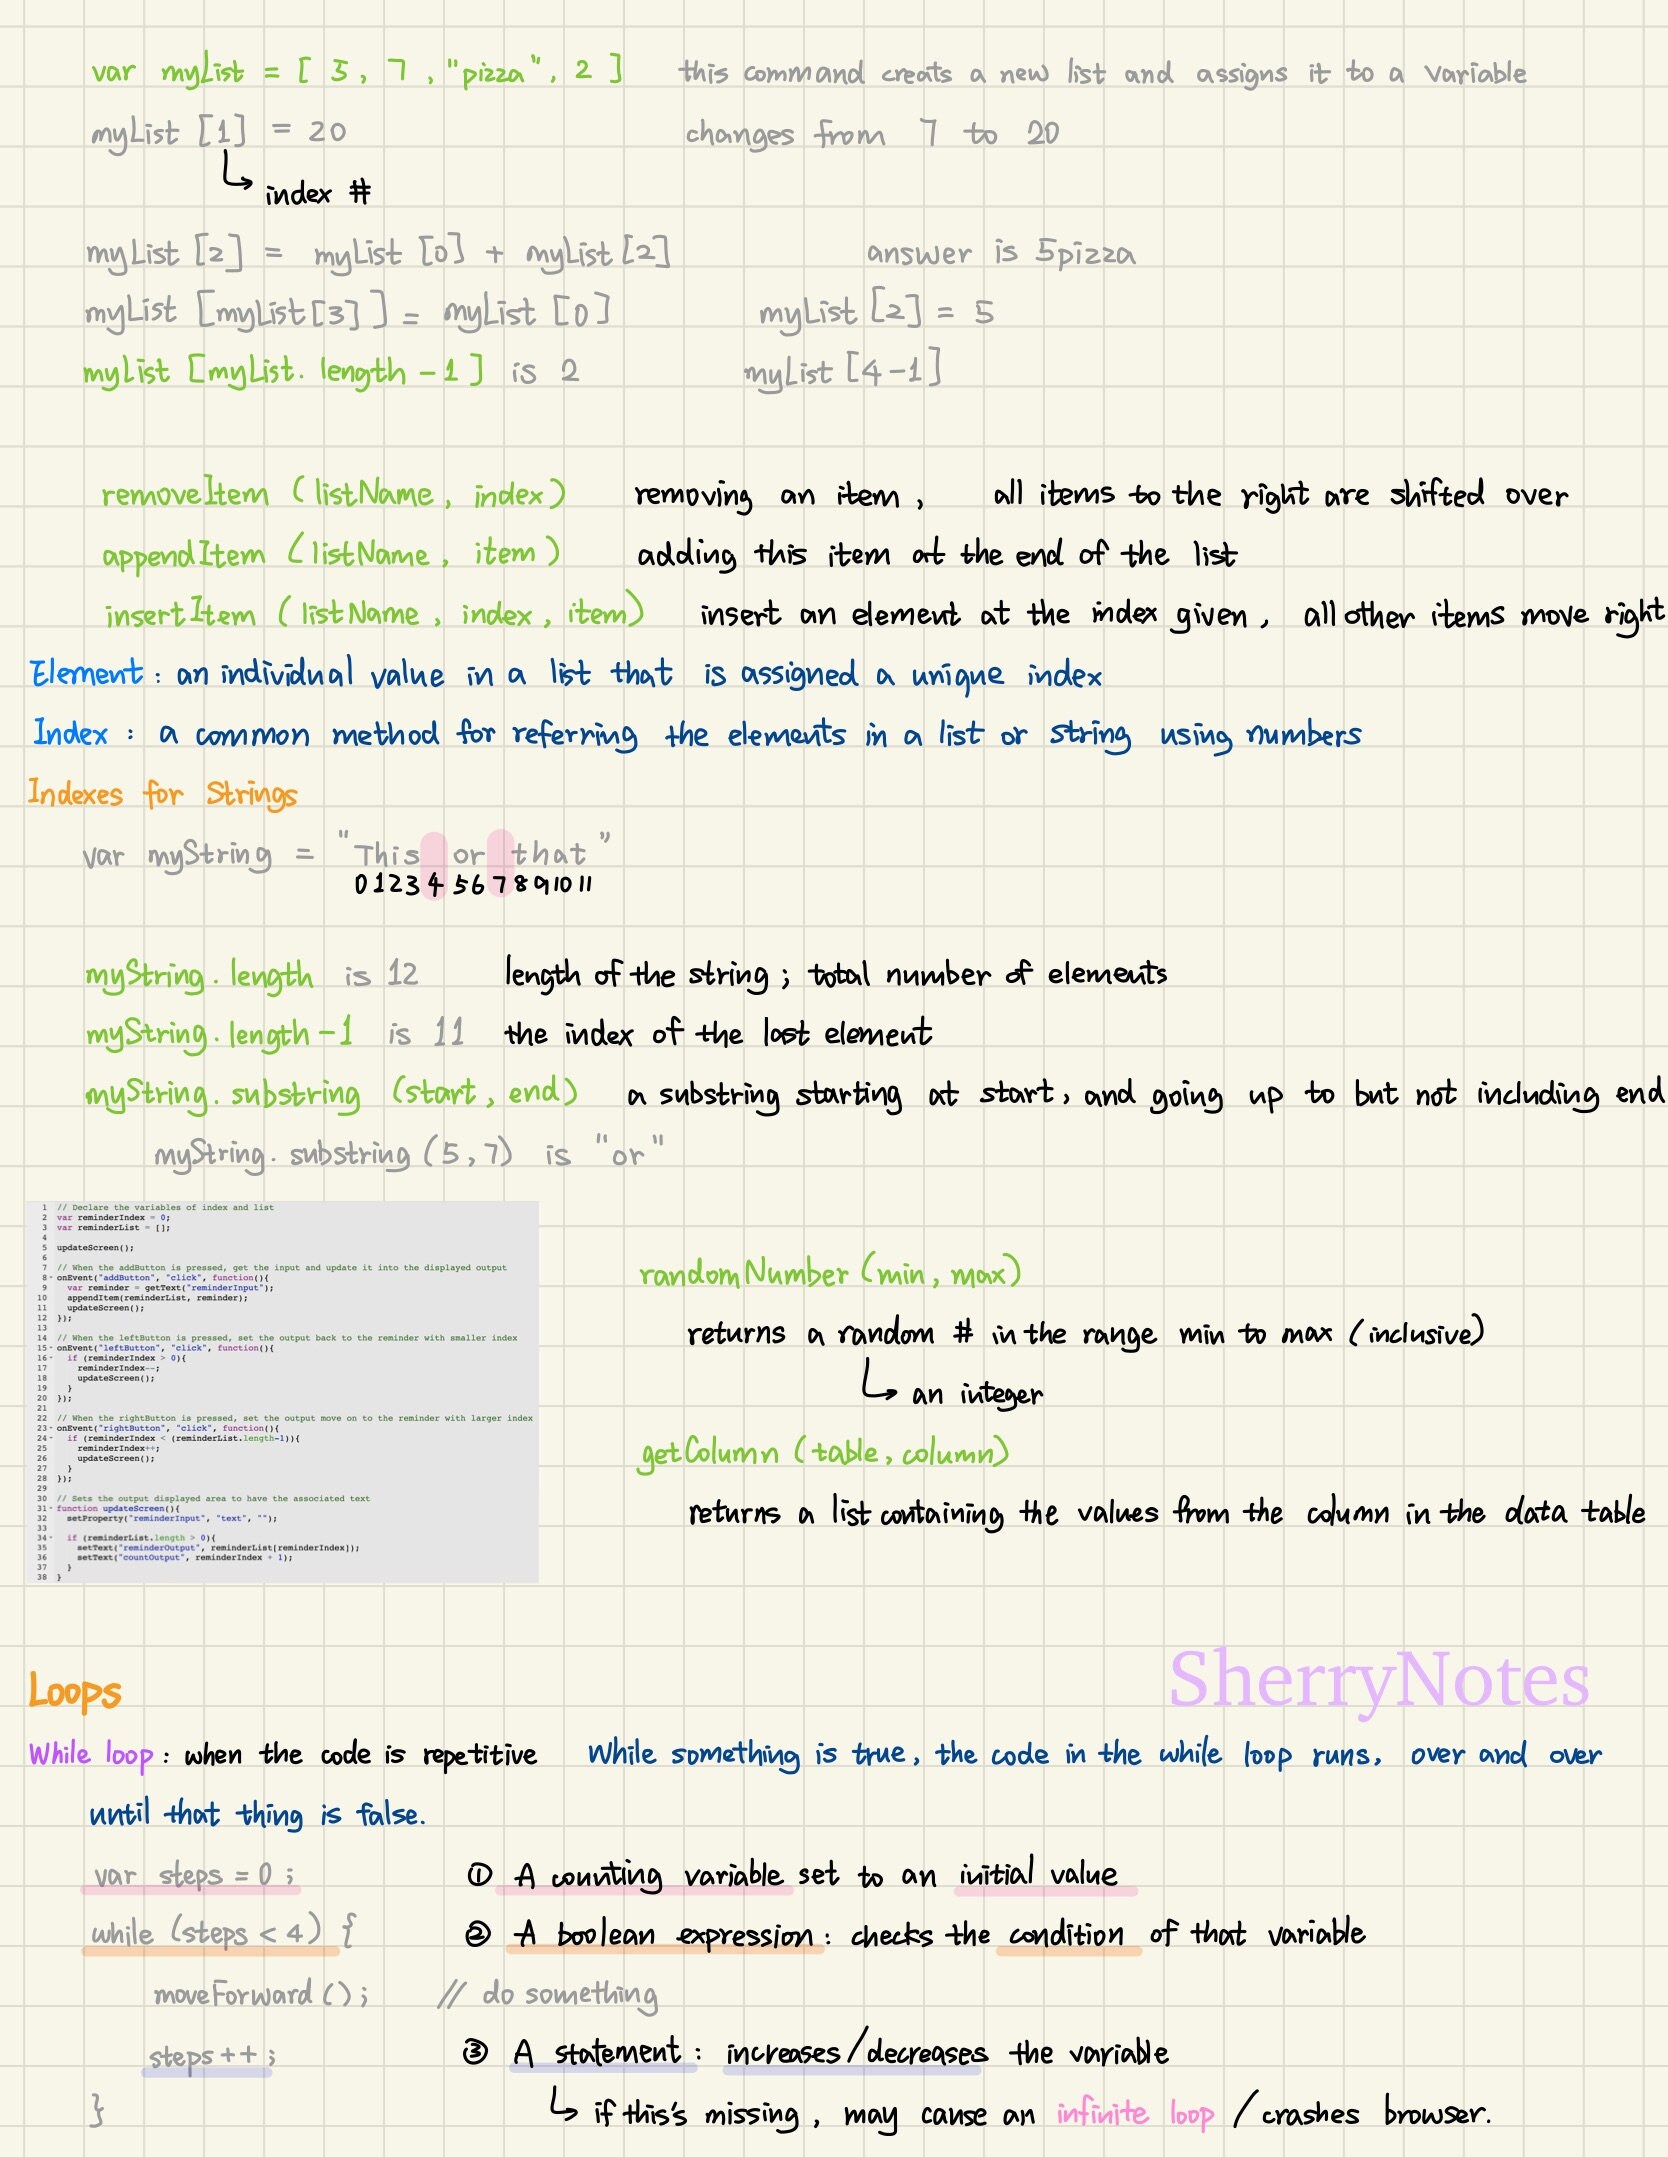 var myList = [ 5, 7, "pizza", 2 ] this command creats a new list and assigns it to a variable
myList [1] = 20 changes from 7 to 20
index #
myList [2] = myList [0] + myList [2] answer is 5pizza
myList [myList[3]] = myList [0] myList [2] = 5
myList [myList.length -1] is 2 myList [4-1]
removeItem (listName, index) removing an item, all items to the right are shifted over
appendItem (listName, item) adding this item at the end of the list
insertItem (listName, index, item) insert an element at the index given, all other items move right
Element: an individual value in a list that is assigned a unique index
Index: a common method for referring the elements in a list or string using numbers
Indexes for Strings
var myString = "This or that"
0 1 2 3 4 5 6 7 8 9 10 11
myString.length is 12 length of the string; total number of elements
myString.length-1 is 11 the index of the last element
myString.substring (start, end) a substring starting at start, and going up to but not including end
myString.substring (5,7) is "or"
1 // Declare the variables of index and list
2 var reminderIndex = 0;
3 var reminderList = [];
4
5 updateScreen();
6
7 // When the addButton is pressed, get the input and update it into the displayed output
8 onEvent("addButton", "click", function(){
9 var reminder = getText("reminderInput");
10 appendItem(reminderList, reminder);
11 updateScreen();
12 });
13
14 // When the leftButton is pressed, set the output back to the reminder with smaller index
15 onEvent("leftButton", "click", function(){
16 if (reminderIndex > 0){
17 reminderIndex--;
18 updateScreen();
19 }
20 });
21
22 // When the rightButton is pressed, set the output move on to the reminder with larger index
23 onEvent("rightButton", "click", function(){
24 if (reminderIndex < (reminderList.length-1)){
25 reminderIndex++;
26 updateScreen();
27 }
28 });
29
30 // Sets the output displayed area to have the associated text
31 function updateScreen(){
32 setProperty("reminderInput", "text", "");
33
34 if (reminderList.length > 0){
35 setText("reminderOutput", reminderList[reminderIndex]);
36 setText("countOutput", reminderIndex + 1);
37 }
38 }
randomNumber (min, max)
returns a random # in the range min to max (inclusive)
an integer
getColumn (table, column)
returns a list containing the values from the column in the data table
SherryNotes
Loops
While loop: when the code is repetitive While something is true, the code in the while loop runs, over and over
until that thing is false.
var steps = 0; ① A counting variable set to an initial value
while (steps < 4) { ② A boolean expression: checks the condition of that variable
moveForward (); // do something
steps++; ③ A statement: increases/decreases the variable
} if this's missing, may cause an infinite loop / crashes browser.